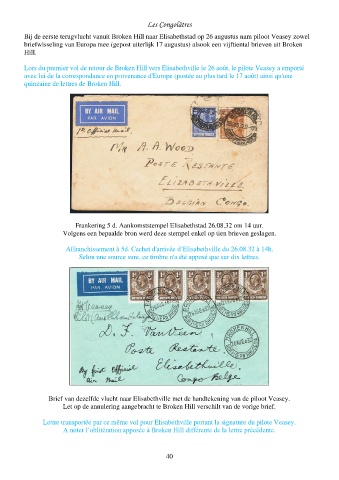 Les Congolâtres
Bij de eerste terugvlucht vanuit Broken Hill naar Elisabethstad op 26 augustus nam piloot Veasey zowel
briefwisseling van Europa mee (gepost uiterlijk 17 augustus) alsook een vijftiental brieven uit Broken
Hill.
Lors du premier vol de retour de Broken Hill vers Elisabethville le 26 août, le pilote Veasey a emporté
avec lui de la correspondance en provenance d'Europe (postée au plus tard le 17 août) ainsi qu'une
quinzaine de lettres de Broken Hill.
BY AIR MAIL
PAR AVION
1st Official Mail
Mr A. A. WOOD
POSTE RESTANTE
ELIZABETHVILLE
BELGIAN CONGO.
Frankering 5 d. Aankomststempel Elisabethstad 26.08.32 om 14 uur.
Volgens een bepaalde bron werd deze stempel enkel op tien brieven geslagen.
Affranchissement à 5d. Cachet d'arrivée d'Elisabethville du 26.08.32 à 14h.
Selon une source sure, ce timbre n'a été apposé que sur dix lettres.
BY AIR MAIL
PAR AVION
Veasey
D. F. Van Veen,
Poste Restante
Elisabethville.
Congo Belge
By first Official
air mail
Brief van dezelfde vlucht naar Elisabethville met de handtekening van de piloot Veasey.
Let op de annulering aangebracht te Broken Hill verschilt van de vorige brief.
Lettre transportée par ce même vol pour Elisabethville portant la signature du pilote Veasey.
A noter l'oblitération apposée à Broken Hill différente de la lettre précédente.
40